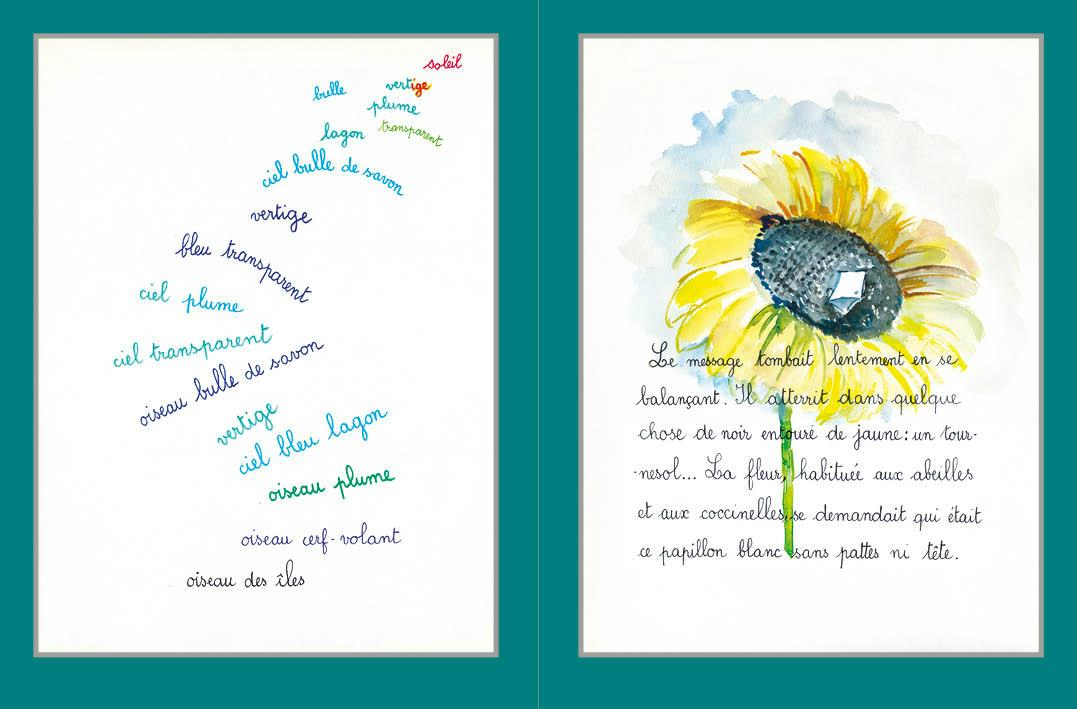 soleil
bulle vertige
plume
lagon transparent
ciel bulle de savon
vertige
bleu transparent
ciel plume
ciel transparent
oiseau bulle de savon
vertige
ciel bleu lagon
oiseau plume
oiseau cerf-volant
oiseau des îles
Le message tombait lentement en se
balançant. Il atterrit dans quelque
chose de noir entouré de jaune : un tour-
-nesol... La fleur, habituée aux abeilles
et aux coccinelles, se demandait qui était
ce papillon blanc sans pattes ni tête.